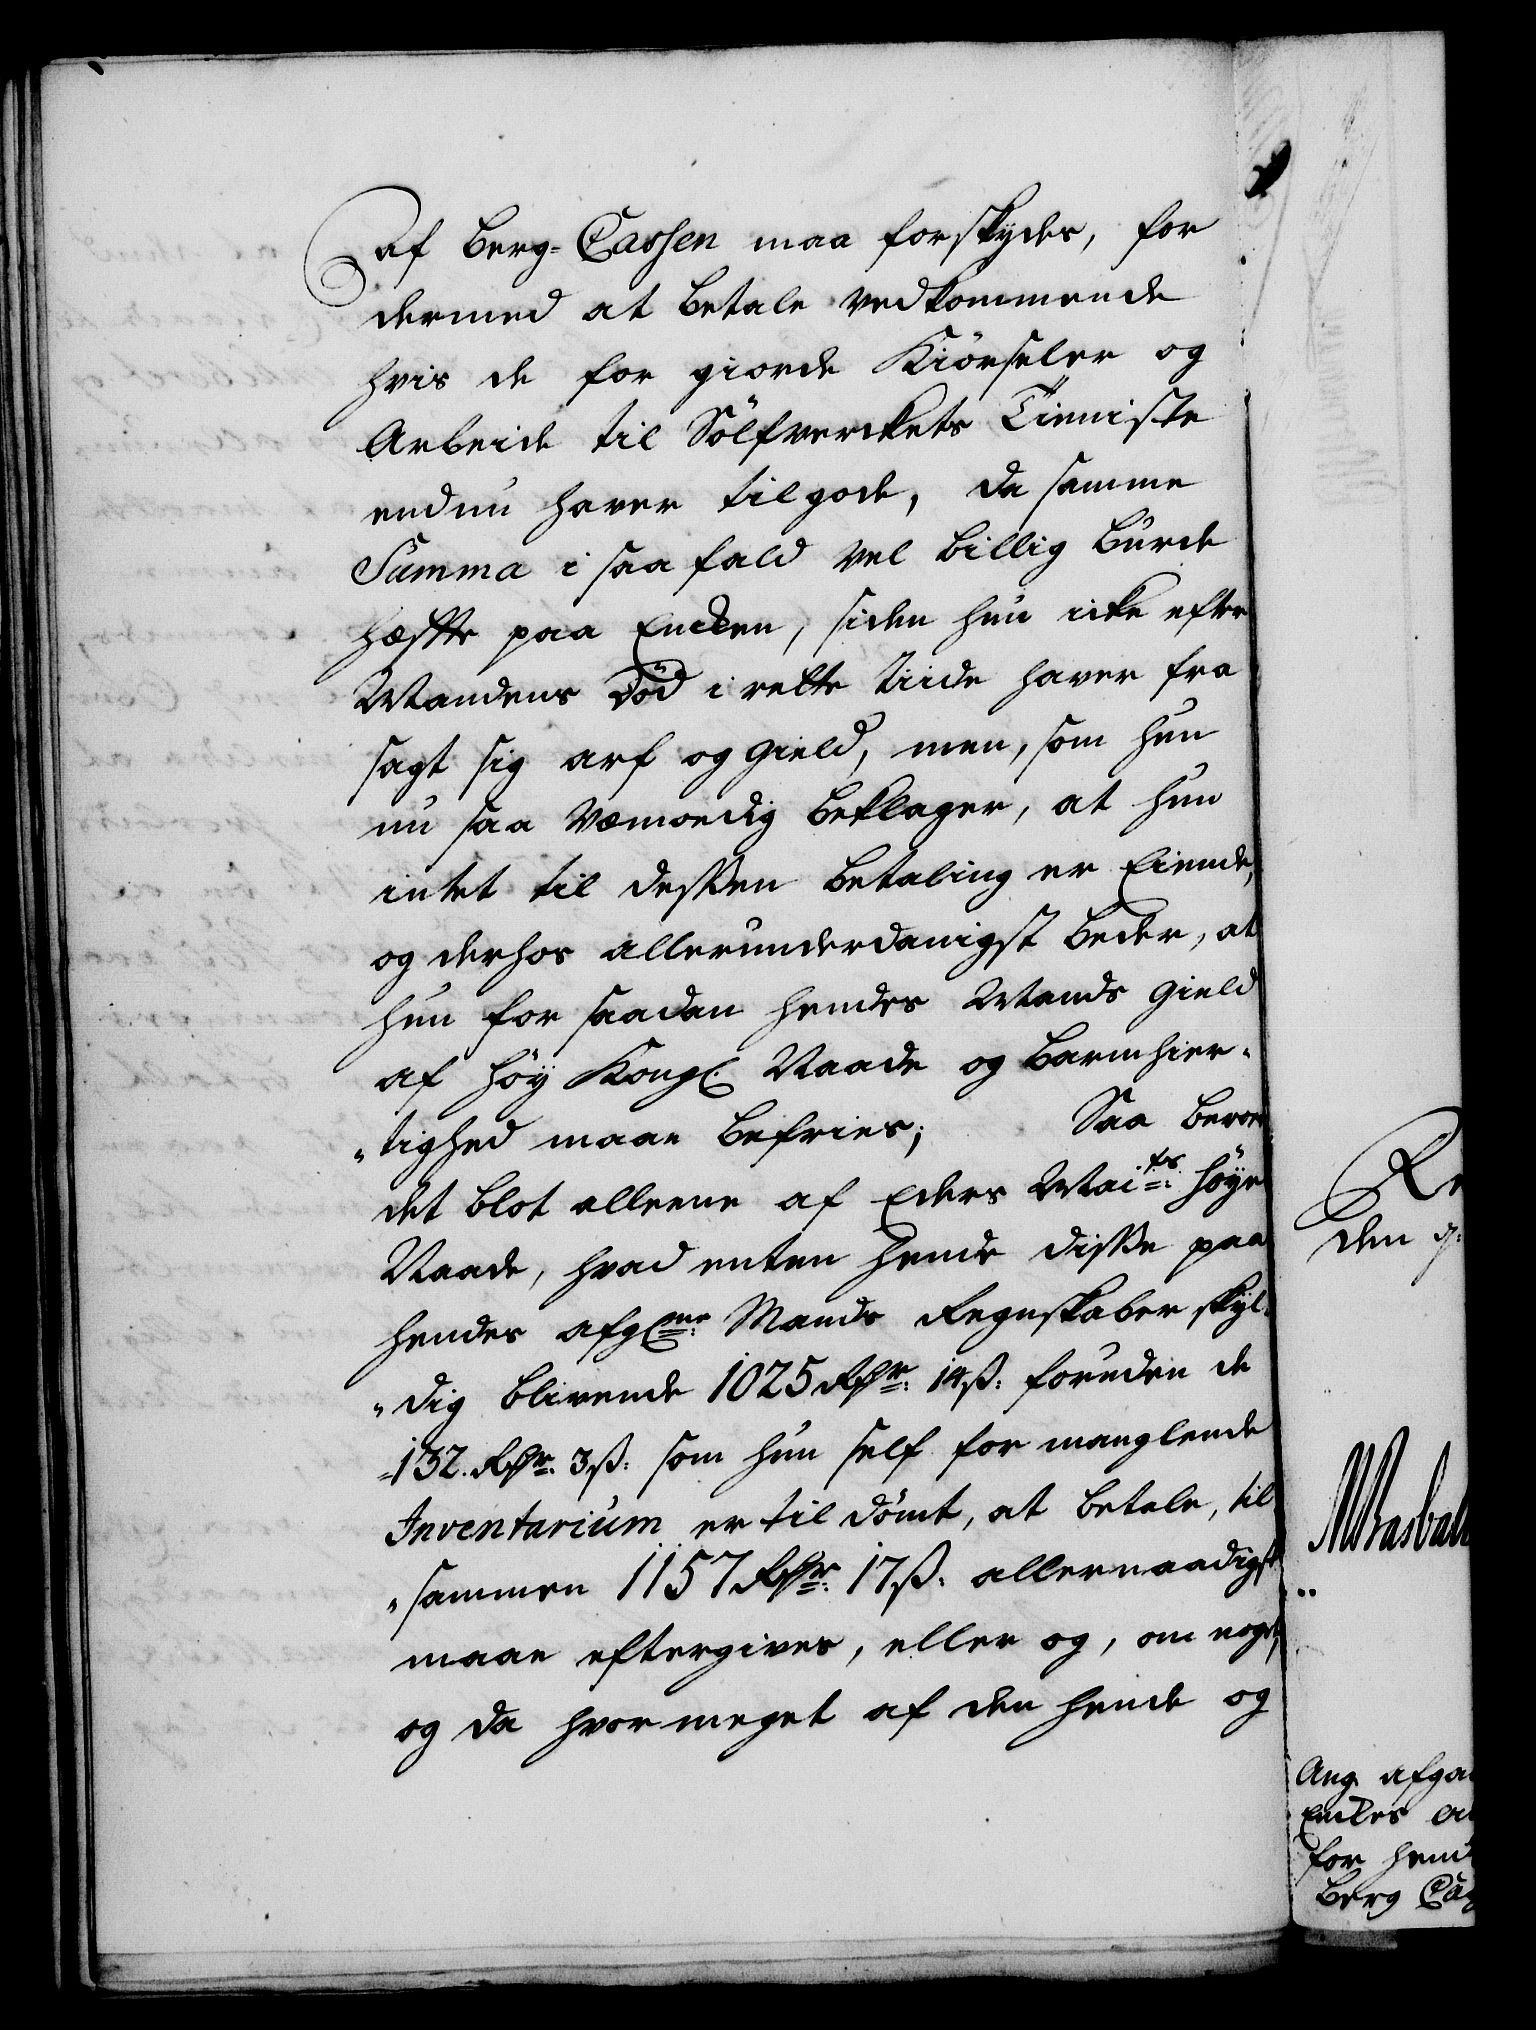 af Berg-Cassen maa forskydes, for
dermed at betale vedkommende
hvis de for giorde Kiörseler og
Arbeide til Sölfverckets Tienniste
endnu haver tilgode, da samme
Summa i saa fald vel billig burde
hæffte paa Encken, siden hun icke efter
Mandens Död i rette tiide haver fra
sagt sig arf og gield, men, som hun
nu saa Væmoedig beklager, at hun
intet til deßen betaling er Eiende,
og derhos allerunderdanigst beder, at
hun for saadan hendes Mands gield
af höy Kongl. Naade og barmhier-
"tighed maae befries; Saa beroer
det blot alleene af Eders Maits: höye
Naade, hvad enten hende diße paa
hendes afgl:ne Mands Regnskaber skyl-
"dig blivende 1025 Rdr: 14ß: foruden de
132. Rdr: 3ß: som hun self for manglende
Inventarium er til dömt, at betale, til
"sammen 1157 Rdr: 17ß: allernaadigst
maae eftergives, eller og, om noget,
og da hvormeget af den hende og
den 7:
Ang. afga
Enckes
for hend
Berg